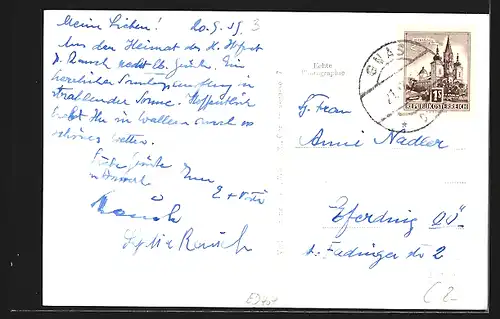 Meine Lieben! 20.9.59
Aus der Heimat des H. Hofrat
J. Rausch recht lb. Grüße. Ein
herrlicher Sonntagsausflug in
strahlender Sonne. Hoffentlich
habt Ihr in Wallern auch so
schönes Wetter.
Liebe Grüße
Rausch
Rausch
Echte
Photographie
GMÜ
REPUBLIK ÖSTERREICH
Fr. Frau
Anni Nadler
Eferding OÖ
Fadingerstr 2